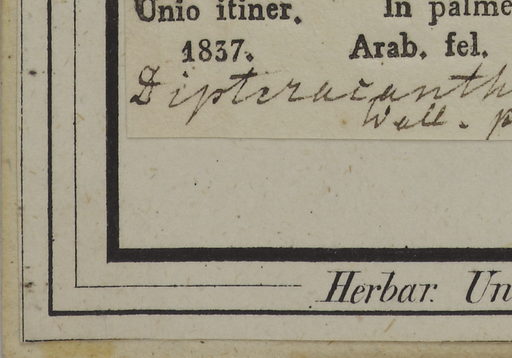 Unio itiner. In palme
1837. Arab. fel.
Dipteracanth
Wall. p
Herbar. Un